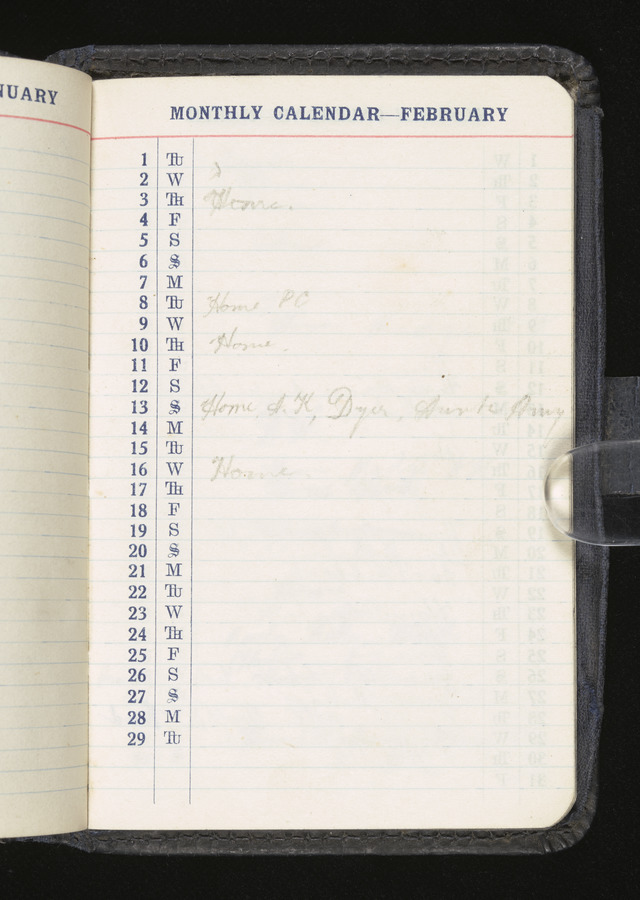 NUARY
MONTHLY CALENDAR—FEBRUARY
1 Tu
2 W
3 Th Home.
4 F
5 S
6 S
7 M
8 Tu Home PC
9 W
10 Th Home.
11 F
12 S
13 S Home. Dyer, Aunt Amy
14 M
15 Tu
16 W Home
17 Th
18 F
19 S
20 S
21 M
22 Tu
23 W
24 Th
25 F
26 S
27 S
28 M
29 Tu